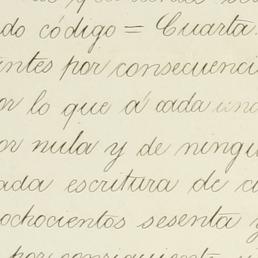 do código = Cuarta.
antes por consecuenci
or lo que á cada uno
or nula y de ningu
ada escritura de c
ochocientos sesenta y
por consiguiente y